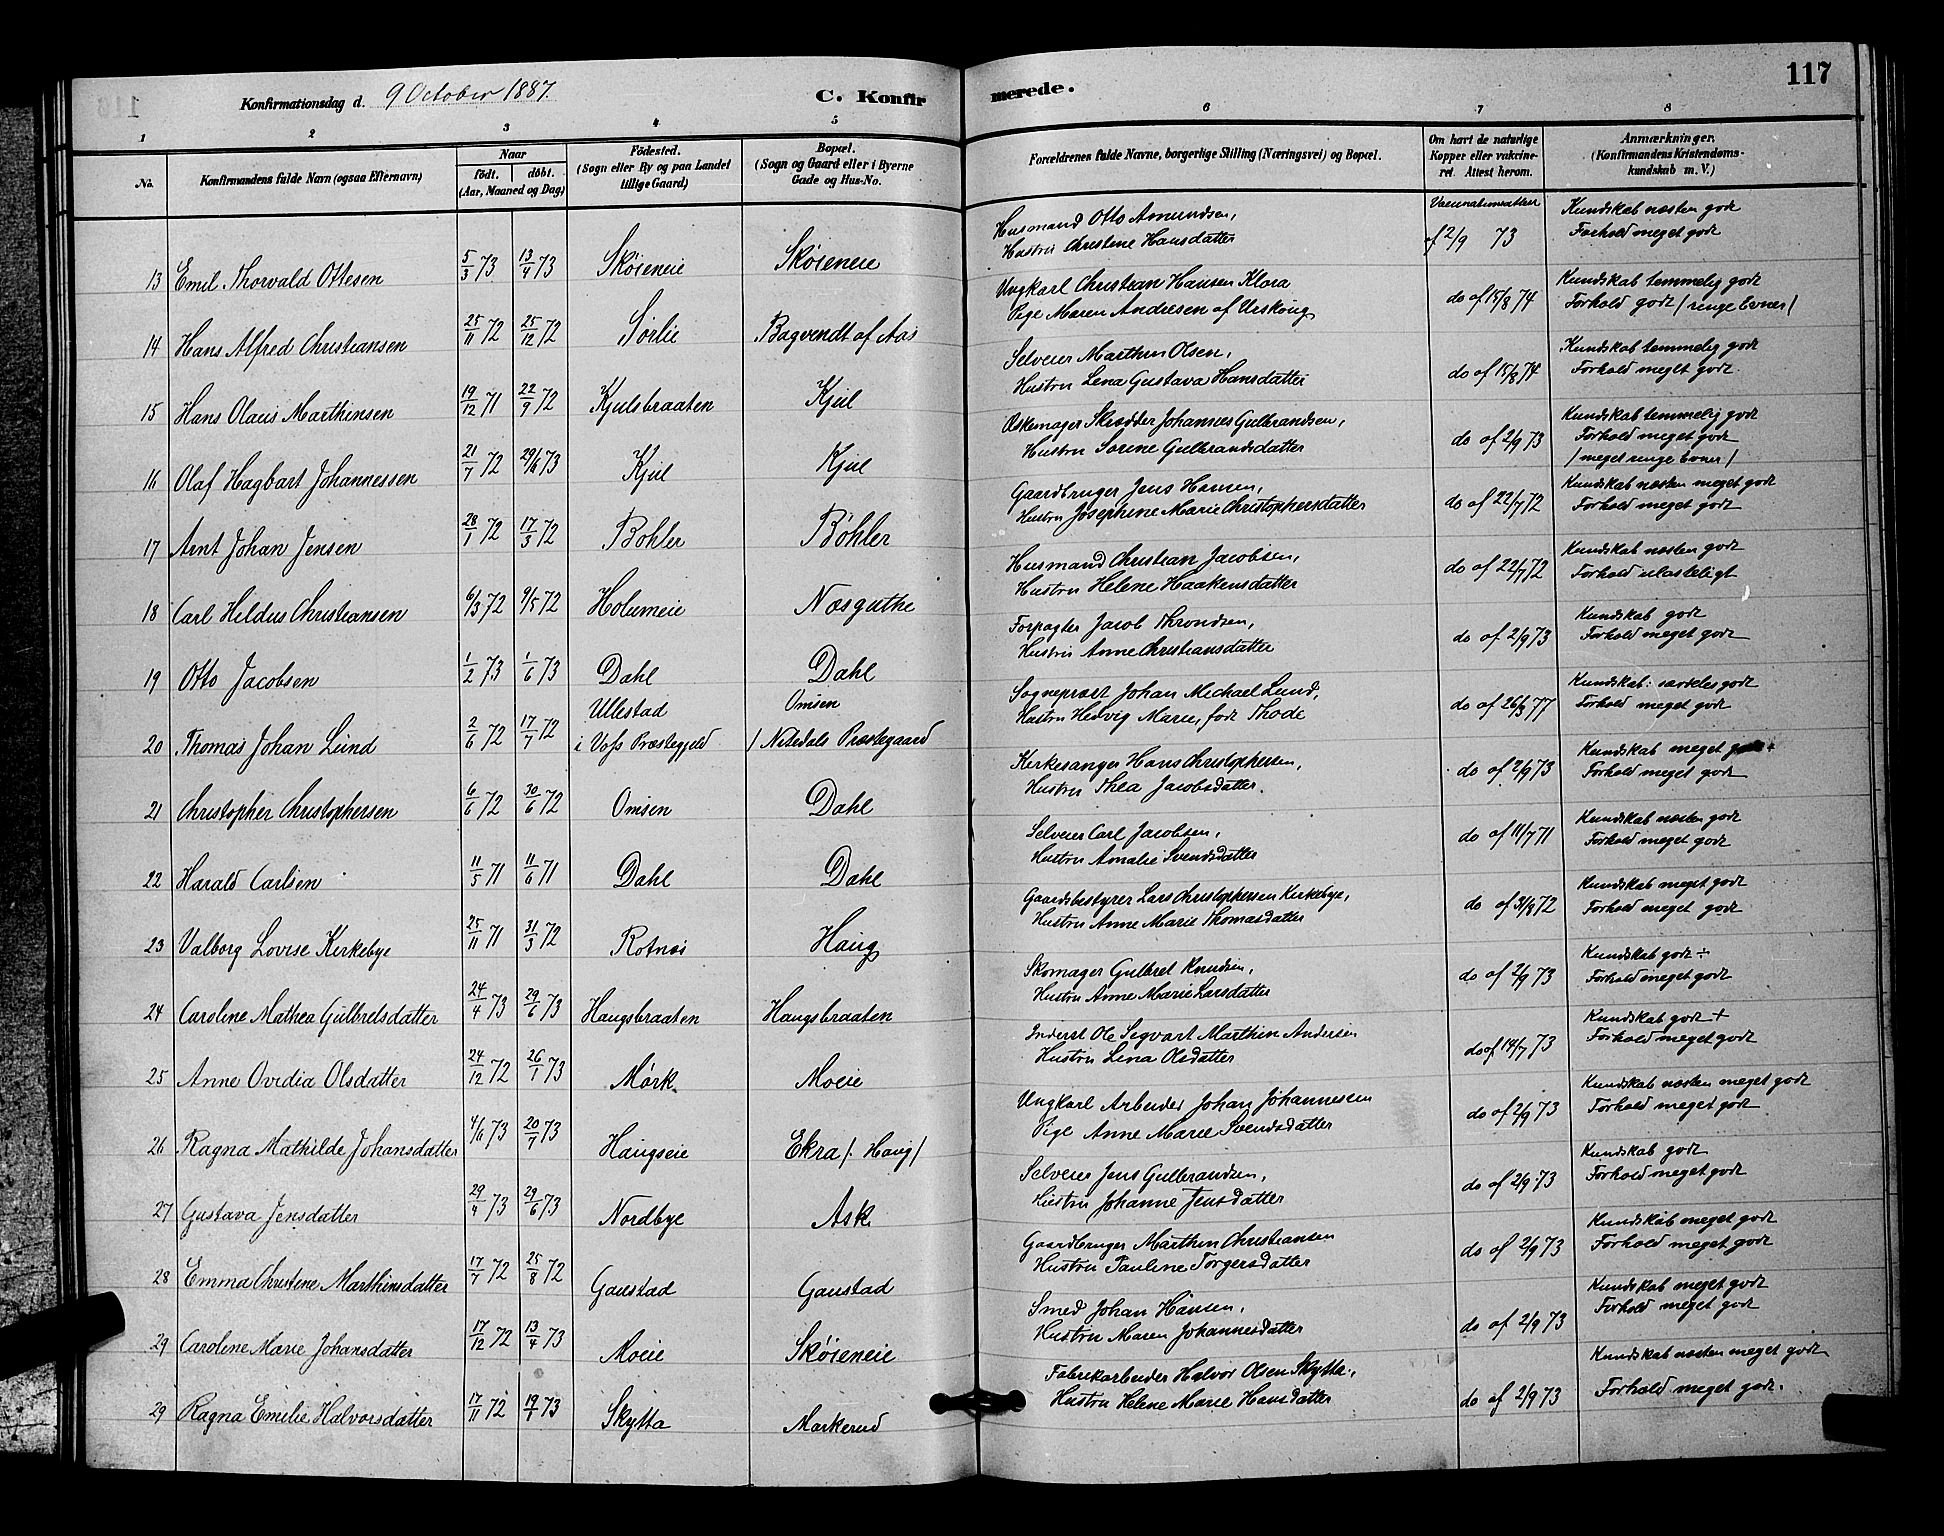 117
Konfirmationsdag d. 9 October 1887 C. Konfirmerede.
1 2 3 4 5 6 7 8
No. Konfirmandens fulde Navn (ogsaa Efternavn) Naar født. døbt. (Aar, Maaned og Dag) Fødested. (Sogn eller By og paa Landet tillige Gaard) Bopæl. (Sogn og Gaard eller i Byerne Gade og Hus-No. Forældrenes fulde Navne, borgerlige Stilling (Næringsvei) og Bopæl. Om havt de naturlige Kopper eller vaccineret. Attest herom. Anmærkninger. (Konfirmandens Kristendomskundskab m. V.)
13 Emil Thorvald Ottesen 5/3 73 13/4 73 Skøieneie Skøieneie Husmand Otto Amundsen, Hustru Christine Hansdatter Vaccinationsattest af 2/9 73 Kundskab næsten godt Forhold meget godt
14 Hans Alfred Christiansen 25/11 72 25/12 72 Sørlie Bagvendt af Aas Ungkarl Christian Hansen Klora Pige Maren Andresen af do af 15/8 74 Kundskab temmelig godt Forhold godt / ringe Evner /
15 Hans Olaus Marthinsen 19/12 71 22/9 72 Kjulsbraaten Kjul Selveier Marthin Olsen, Hustru Lena Gustava Hansdatter do af 15/8 74 Kundskab temmelig godt Forhold meget godt
16 Olaf Hagbart Johannessen 21/7 72 29/6 73 Kjul Kjul Skrædder Johannes Gulbrandsen, Hustru Sorine Gulbrandsdatter do af 2/9 73 Kundskab temmelig godt Forhold meget godt / meget ringe Evner /
17 Arnt Johan Jensen 28/1 72 17/3 72 Bøhler Bøhler Gaardbruger Jens Hansen, Hustru Josephine Marie Christophersdatter do af 22/7 72 Kundskab næsten meget godt Forhold meget godt
18 Carl Hildus Christiansen 6/3 72 9/5 72 Holumeie Næsguthe Husmand Christian Jacobsen, Hustru Helene Haakensdatter do af 22/7 72 Kundskab næsten godt Forhold ulasteligt
19 Otto Jacobsen 1/2 73 1/6 73 Dahl Dahl Forpagter Jacob Throndsen, Hustru Anne Christiansdatter do af 2/9 73 Kundskab godt Forhold meget godt
20 Thomas Johan Lund 2/6 72 17/7 72 Ullestad i Voss Præstegjeld Omsen / Nitedals Præstegaard Sogneprest Johan Michael Lund, Hustru Hedvig Marie, født Thode do af 26/3 77 Kundskab: særdeles godt Forhold meget godt
21 Christopher Christophersen 6/6 72 30/6 72 Omsen Dahl Kirkesanger Hans Christophersen, Hustru Thea Jacobsdatter. do af 2/9 73 Kundskab meget godt Forhold meget godt
22 Harald Carlsen 11/5 71 11/6 71 Dahl Dahl Selveier Carl Jacobsen, Hustru Amalie Svendsdatter do af 11/7 71 Kundskab næsten godt Forhold meget godt
23 Valborg Lovise Kirkebye 25/11 71 31/3 72 Rotnæs Haug Gaardsbestyrer Lars Christophersen Kirkebye, Hustru Anne Marie Thomasdatter do af 31/8 72 Kundskab meget godt Forhold meget godt
24 Caroline Mathea Gulbretsdatter 24/4 73 29/6 73 Haugsbraaten Haugsbraaten Skomager Gulbret Knudsen, Hustru Anne Marie Larsdatter do af 2/9 73 Kundskab godt ÷ Forhold meget godt
25 Anne Ovidia Olsdatter 24/12 72 26/1 73 Mørk Moeie Inderst Ole Segvart Marthin Andersen Hustru Lena Olsdatter do af 14/7 73 Kundskab godt + Forhold meget godt
26 Ragna Mathilde Johansdatter 4/6 73 20/7 73 Haugseie Ekra /: Haug / Ungkarl Arbeider Johan Johannesen Pige Anne Marie Svendsdatter do af 2/9 73 Kundskab næsten meget godt Forhold meget godt
27 Gustava Jensdatter 29/4 73 29/6 73 Nordbye Ask Selveier Jens Gulbrandsen, Hustru Johanne Jensdatter do af 2/9 73 Kundskab godt Forhold meget godt
28 Emma Christine Marthinsdatter 17/7 72 25/8 72 Gaustad Gaustad Gaardbruger Marthin Christiansen Hustru Pauline Torgersdatter do af 2/9 73 Kundskab meget godt Forhold meget godt
29 Caroline Marie Johansdatter 17/12 72 13/4 73 Moeie Skøieneie Smed Johan Hansen, Hustru Maren Johannesdatter do af 2/9 73 Kundskab meget godt Forhold meget godt
29 Ragna Emilie Halvorsdatter 17/11 72 19/1 73 Skytta Markerud Fabrikarbeider Halvor Olsen Skytta, Hustru Helene Marie Hansdatter do af 2/9 73 Kundskab næsten meget godt Forhold meget godt.